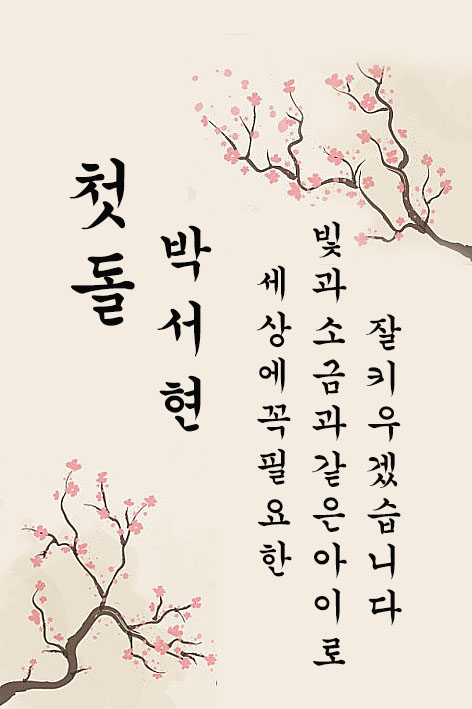 첫돌
박서현
세상에꼭필요한
빛과소금과같은아이로
잘키우겠습니다